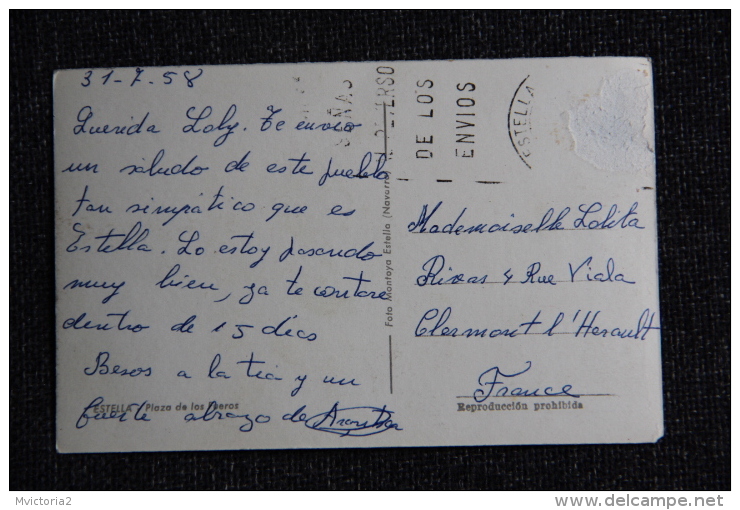 31-7-58
Querida Loly. Te envio
un saludo de este pueblo
tan simpático que es
Estella. Lo estoy pasando
muy bien, ya te contare
dentro de 15 dias
Besos a la tia y un
fuerte abrazo de
ESTELLA Plaza de los Fueros
Foto Montoya Estella (Navarra)
SEÑAS
REVERSO
DE LOS
ENVIOS
ESTELLA
Mademoiselle Lolita
4 Rue Viala
Clermont l'Herault
France
Reproducción prohibida
Mvictoria2
http://www.delcampe.net